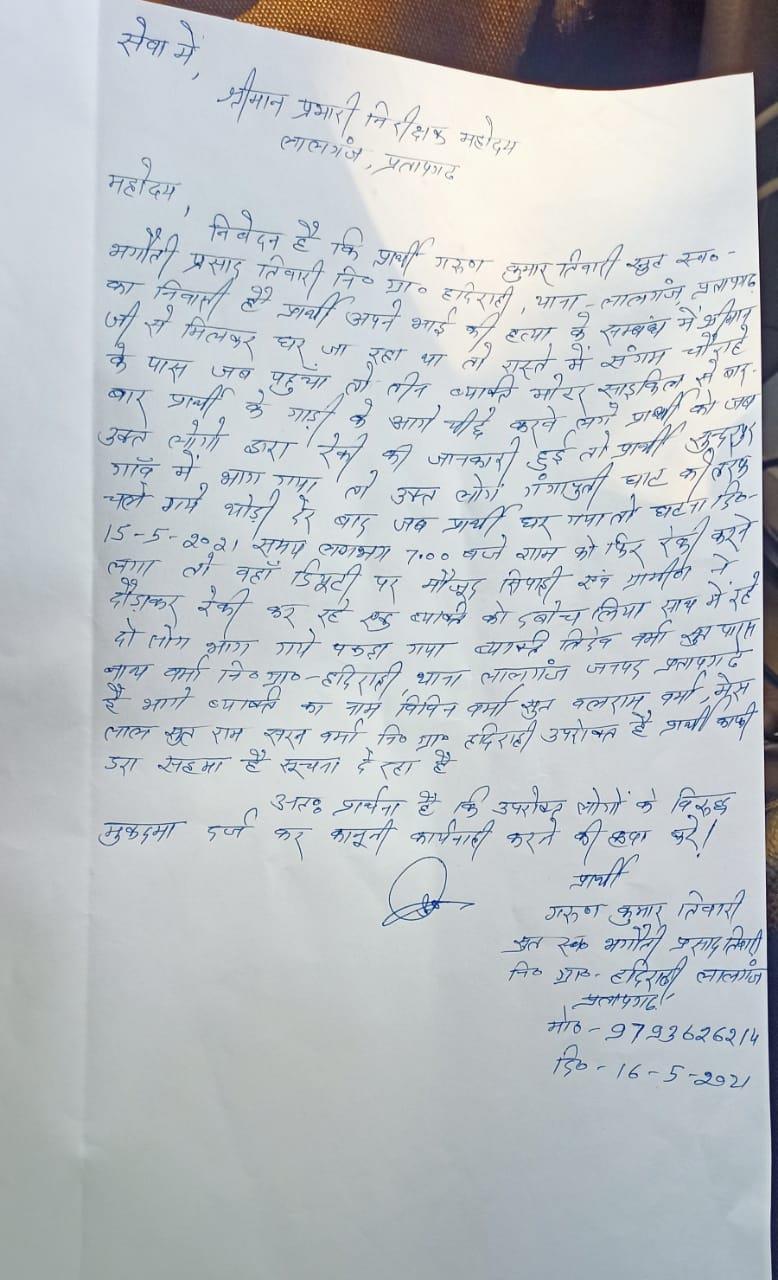 सेवा में,
श्रीमान प्रभारी निरीक्षक महोदय
लालगंज, प्रतापगढ
महोदय,
निवेदन है कि प्रार्थी गरुण कुमार तिवारी सुत स्व०-
भगौती प्रसाद तिवारी नि० ग्रा० हदिराही, थाना-लालगंज, प्रतापगढ
का निवासी है प्रार्थी अपने भाई की हत्या के सम्बंध में श्रीमान
जी से मिलकर घर जा रहा था तो रास्ते में संगम चौराहे
के पास जब पहुचाँ तो तीन व्याक्ति मोटर साइकिल से बार-
बार प्रार्थी के गाड़ी के आगे पीछे करने लगे प्रार्थी को जब
उक्त लोगो द्वारा रेकी की जानकारी हुई तो प्रार्थी
गाँव में भाग गया तो उक्त लोग घाट की तरफ
चले गये थोड़ी देर बाद जब प्रार्थी घर गया तो घटना दि०-
15-5-2021 समय लगभग 7:00 बजे शाम को फिर रेकी करने
लगा तो वहाँ डियूटी पर मौजूद सिपाही एवं ग्रामीणो ने
दौड़ाकर रेकी कर रहे एक व्याक्ति को दबोच लिया साथ में रहे
दो लोग भाग गये पकड़ा गया व्याक्ति वर्मा सुत पारस
नाथ वर्मा नि० ग्रा०-हदिराही, थाना लालगंज जनपद प्रतापगढ
है भागे व्याक्ति का नाम विपिन वर्मा सुत बलराम वर्मा,
लाल सुत राम वर्मा नि० ग्रा० हदिराही उपरोक्त है प्रार्थी काफी
डरा सहमा है सूचना दे रहा है
अतः प्रार्थना है कि उपरोक्त लोगों के विरुद्ध
मुकदमा दर्ज कर कानूनी कार्यवाही करने की कृपा करे!
प्रार्थी
गरुण कुमार तिवारी
सुत स्व० भगौती प्रसाद तिवारी
नि० ग्रा०- हदिराही लालगंज
प्रतापगढ
मो०-9793626214
दि०-16-5-2021